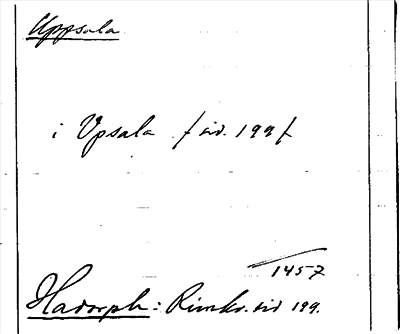 Uppsala
i Upsala / sid. 199 /
1457
Hadorph: Rimkr. sid 199.